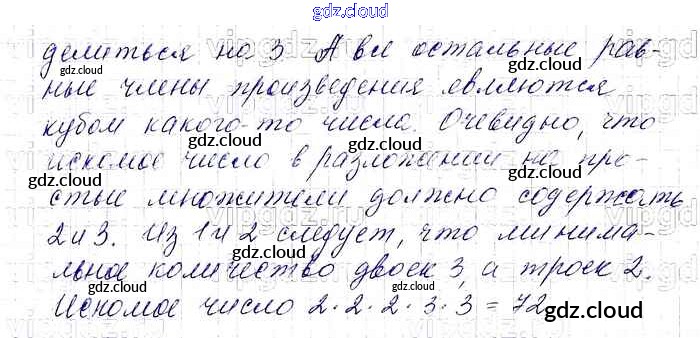 gdz.cloud
делиться на 3 А все остальные рав-
ные члены произведения являются
кубом какого-то числа. Очевидно, что
искомое число в разложении на про-
стые множители должно содержать
2 и 3. Из 1 и 2 следует, что минима-
льное количество двоек 3, а троек 2.
Искомое число 2·2·2·3·3=72
gdz.cloud